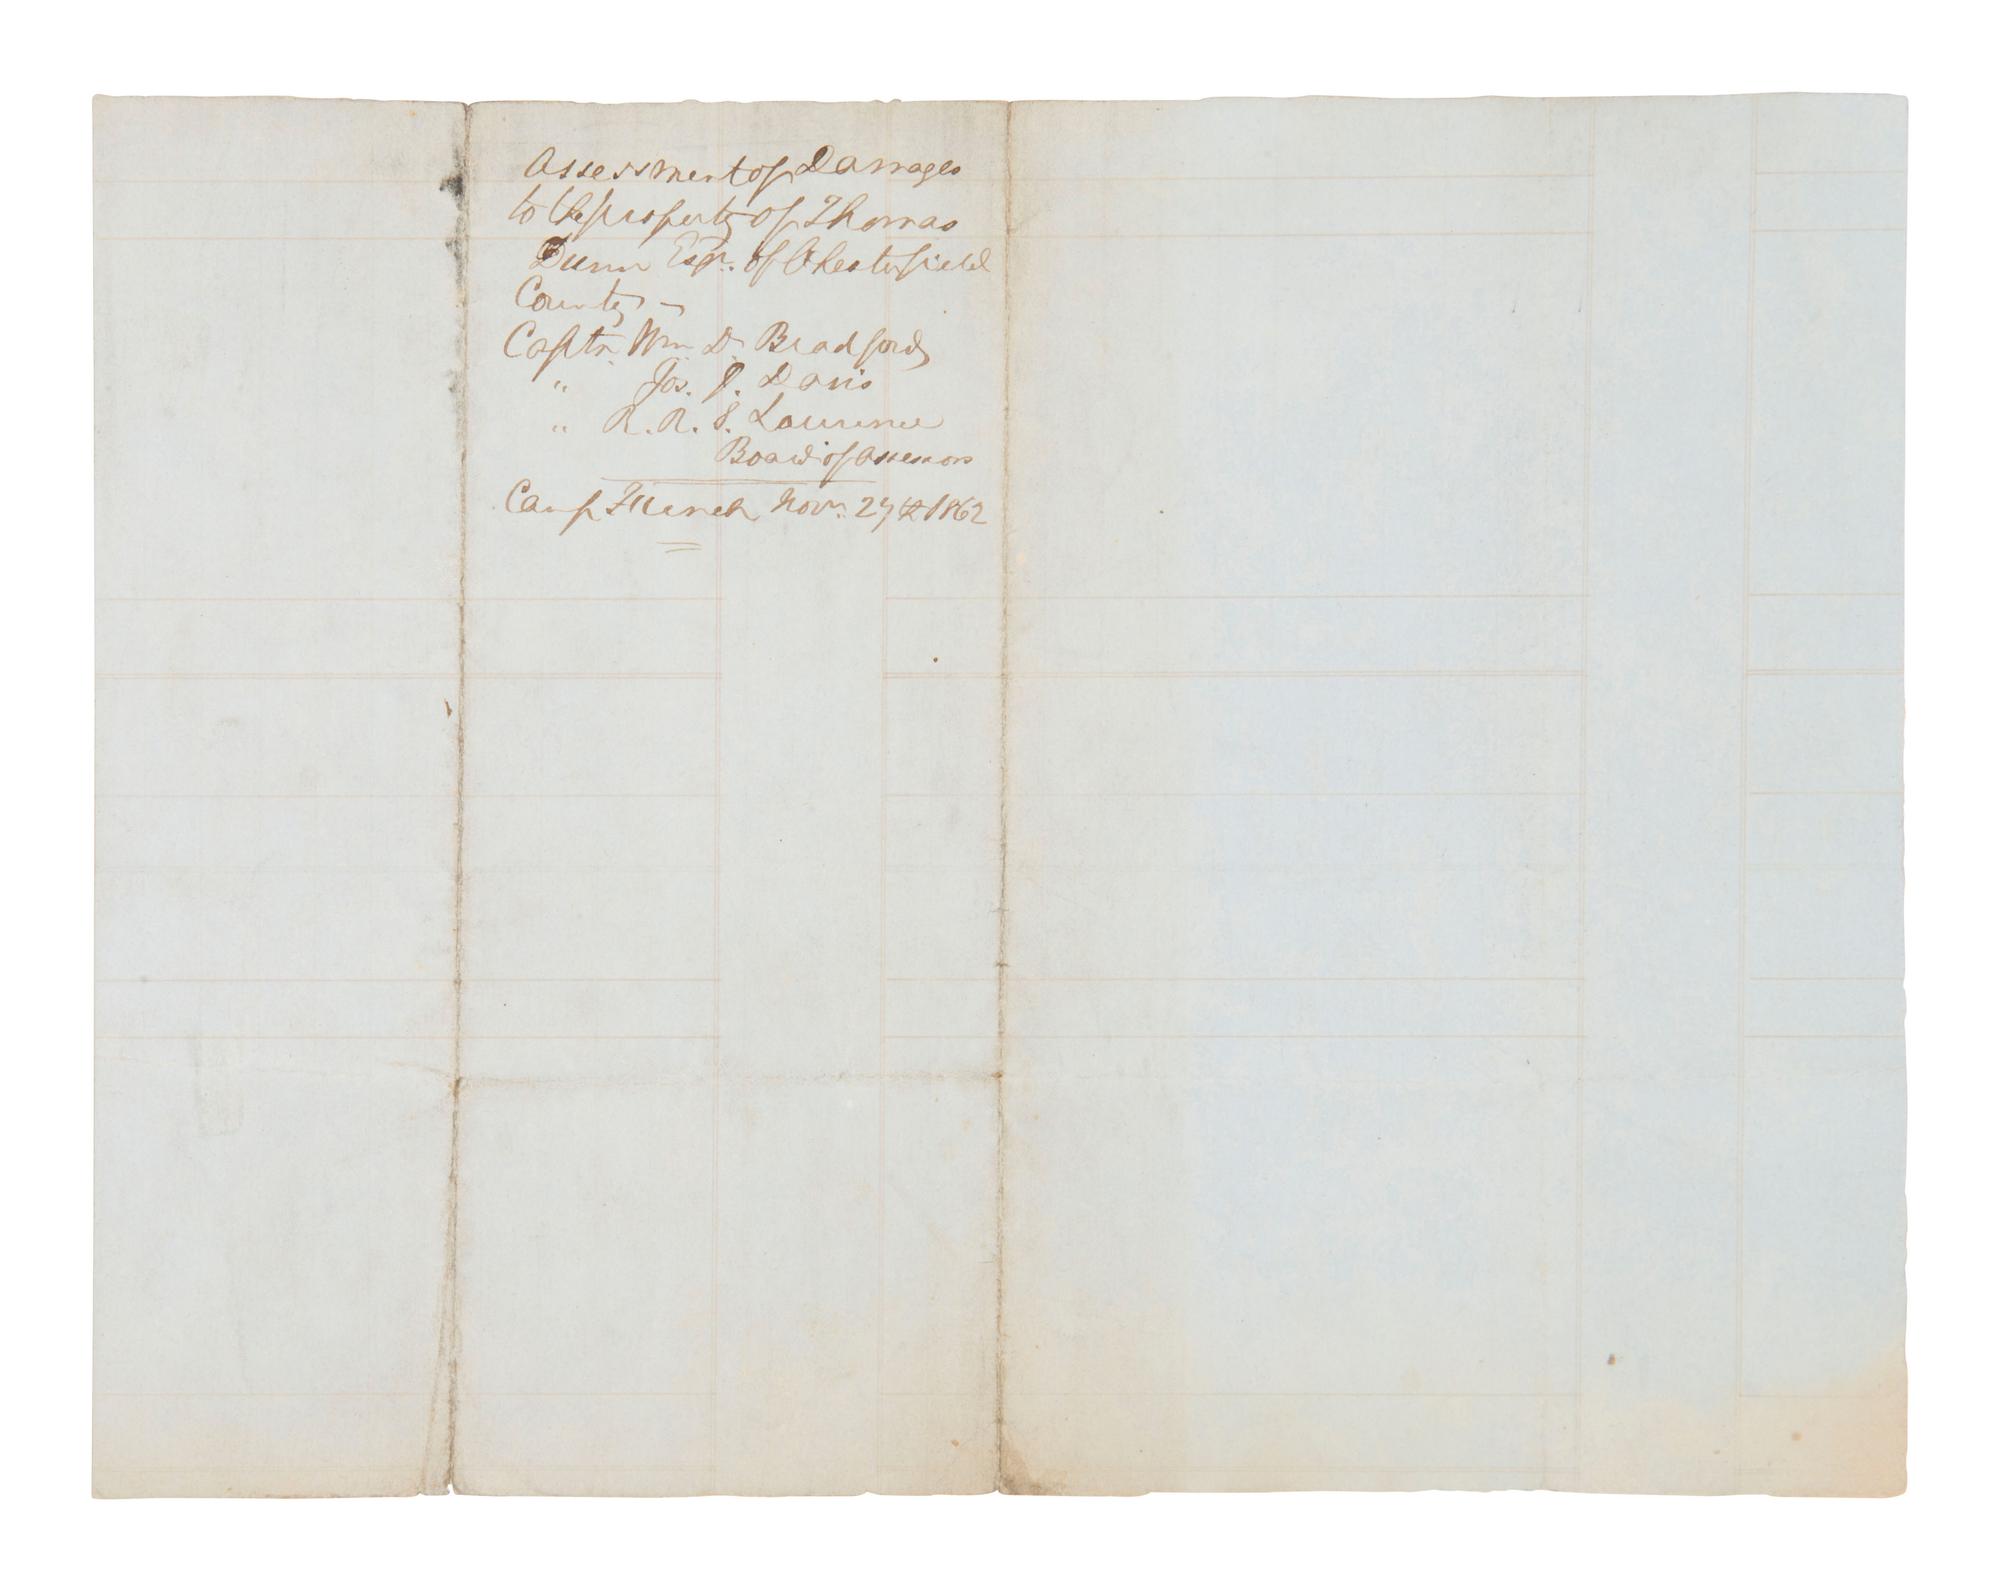 Assessment of Damages
to the property of Thomas
Dunn Esqr. of Chesterfield
County –
Captn. Wm D. Bradford
" Jos. J. Davis
" R. R. S. Lawrence
Board of Assessors
Camp French Novr. 27th 1862